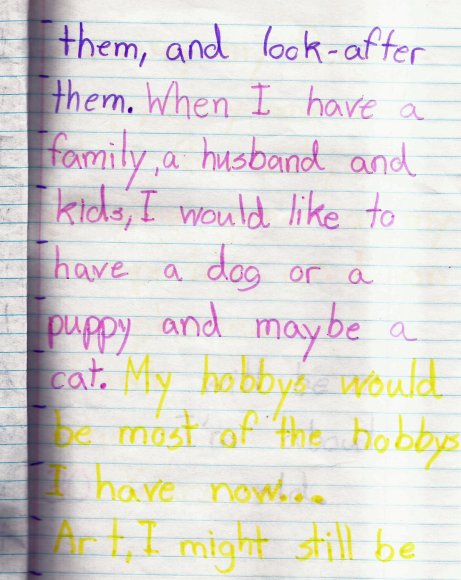 them, and look-after
them. When I have a
family, a husband and
kids, I would like to
have a dog or a
puppy and maybe a
cat. My hobbys would
be most of the hobbys
I have now...
Art, I might still be